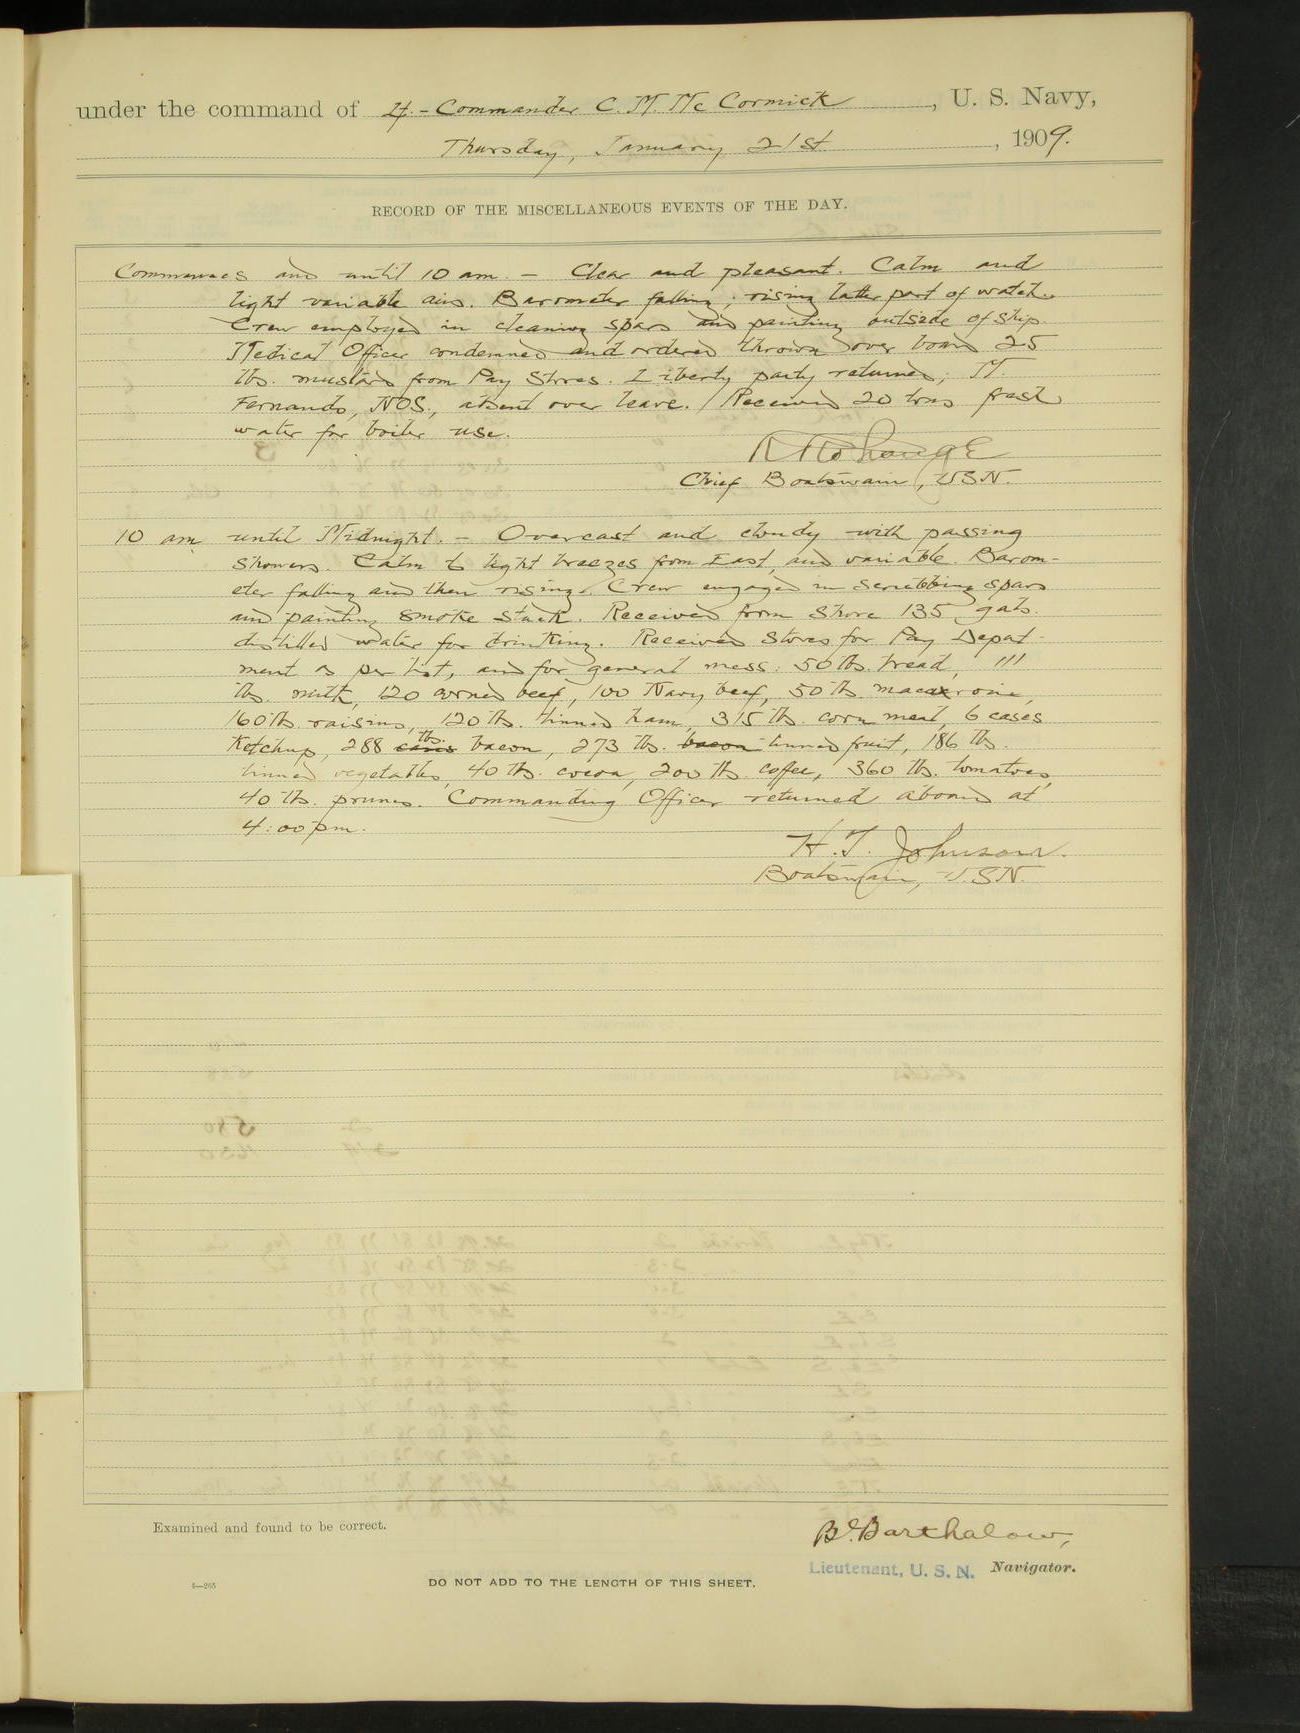 under the command of Lt.-Commander C. M. McCormick, U. S. Navy,
Thursday, January 21st, 1909.
RECORD OF THE MISCELLANEOUS EVENTS OF THE DAY.
Commences and until 10 am. - Clear and pleasant. Calm and
light variable airs. Barometer falling; rising latter part of watch.
Crew employed in cleaning spars and painting outside of ship.
Medical Officer condemned and ordered thrown over board 25
lbs. mustard from Pay Stores. Liberty party returned; M.
Fernando, NOS., absent over leave. Received 20 tons fresh
water for boiler use.
Chief Boatswain, USN.
10 am until Midnight. - Overcast and cloudy with passing
showers. Calm to light breezes from East, and variable. Barom-
eter falling and then rising. Crew engaged in scrubbing spars
and painting smoke stack. Received from shore 135 gals.
distilled water for drinking. Received Stores for Pay Depat-
ment as per list, and for general mess: 50 lbs. bread, 111
lbs. milk, 120 corned beef, 100 Navy beef, 50 lb. macaroni,
160 lb. raisins, 120 lb. tinned ham, 315 lb. corn meal, 6 cases
Ketchup, 288 cases lbs. bacon, 273 lbs. bacon tinned fruit, 186 lbs.
tinned vegetables, 40 lbs. cocoa, 200 lb. coffee, 360 lb. tomatoes,
40 lb. prunes. Commanding Officer returned aboard at
4:00 pm.
H. T. Johnson.
Boatswain, U.S.N.
Examined and found to be correct.
Barthalow,
Lieutenant, U. S. N. Navigator.
DO NOT ADD TO THE LENGTH OF THIS SHEET.